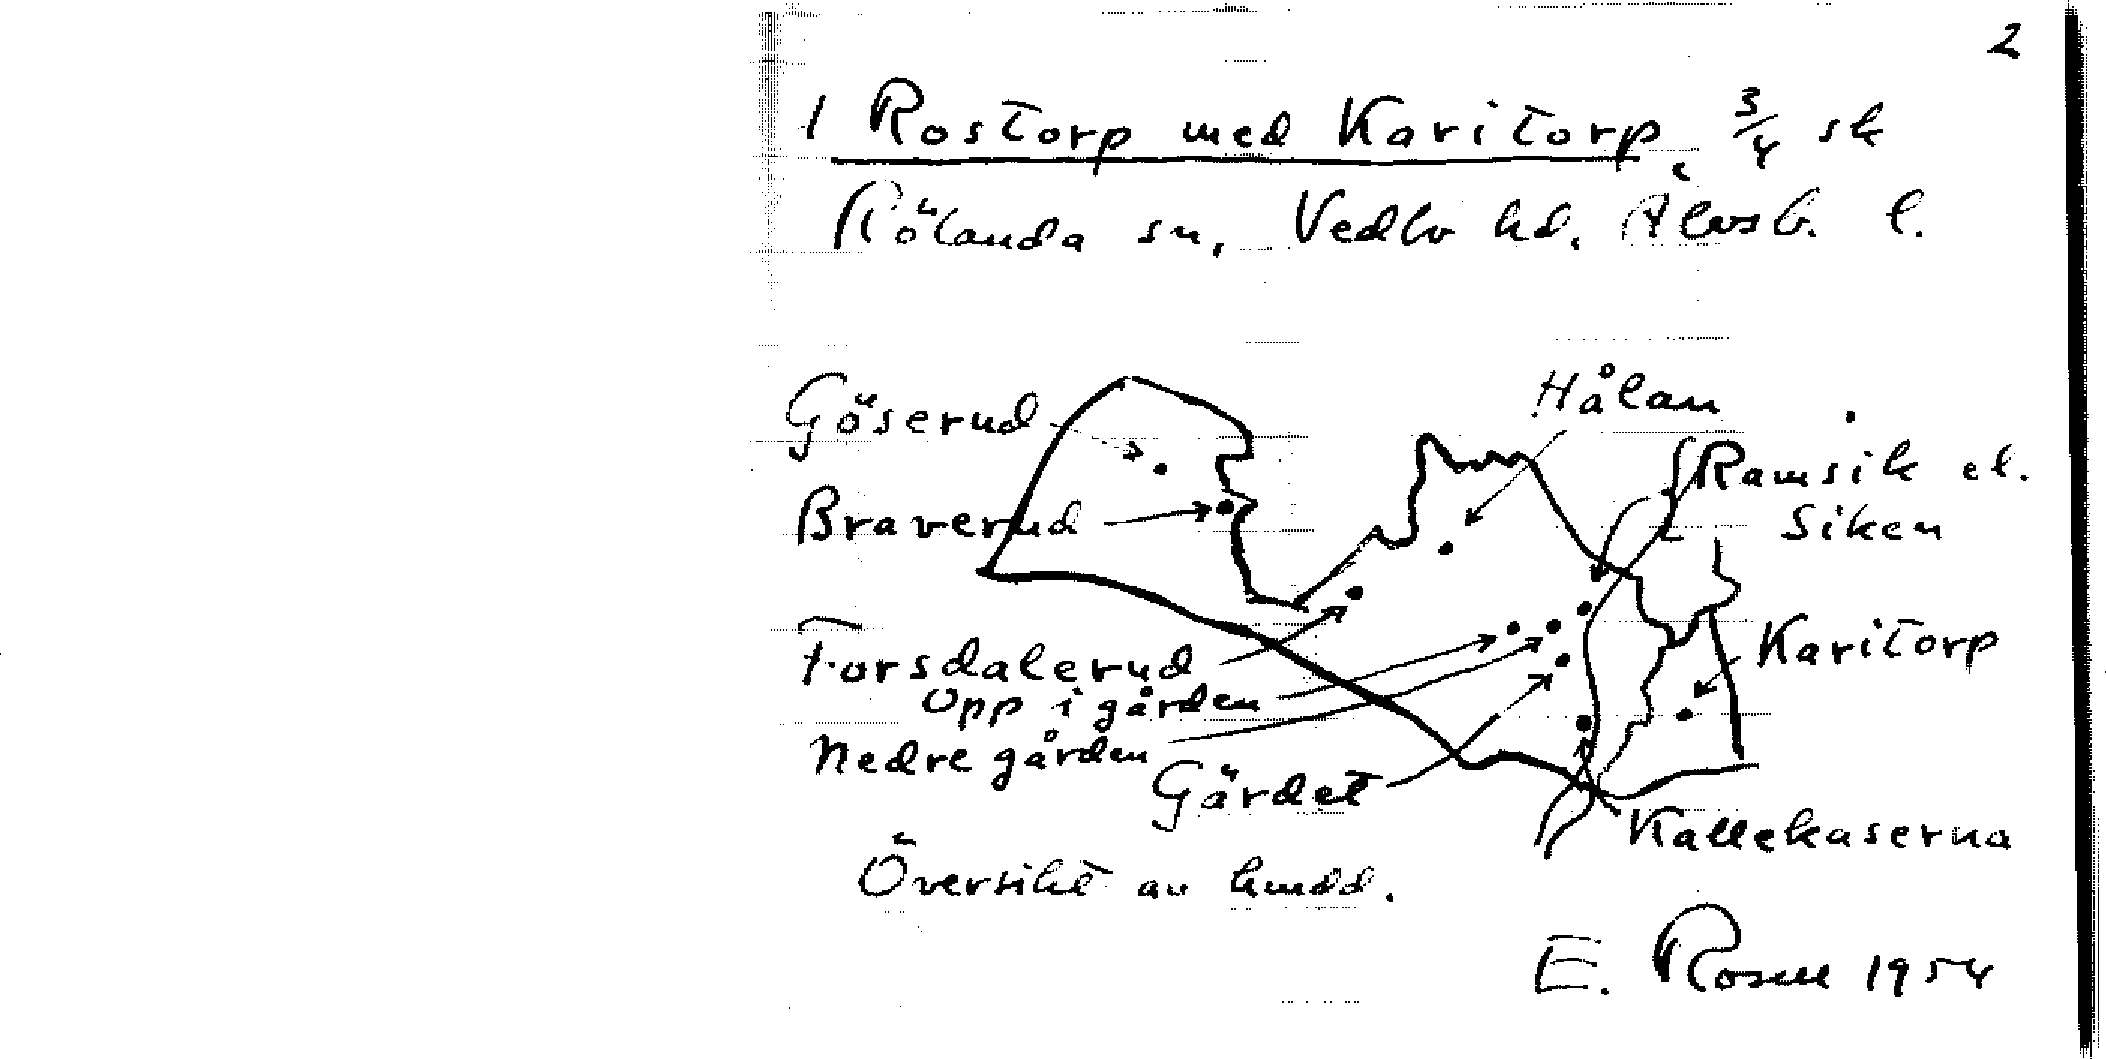 2
1 Rostorp med Karitorp, 3/4 sk
Rölanda sn, Vedbo hd. Älvsb. l.
Göserud
Hålan
Braverud
Ramsik el.
Siken
Forsdalerud
Karitorp
Opp i gården
Nedre gården
Gärdet
Kallekaserna
Översikt av hmdd.
E. Rosell 1954